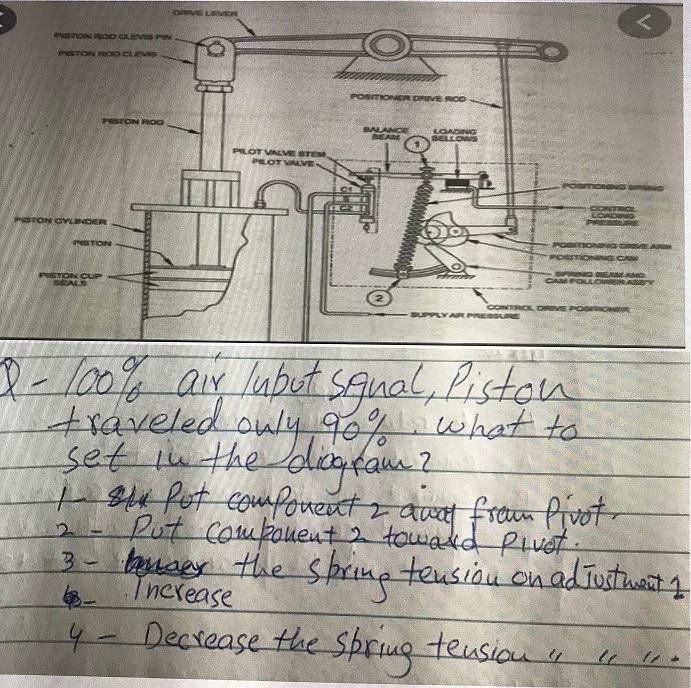 DRIVE LEVER
PISTON ROD CLEVIS PIN
PISTON ROD CLEVIS
POSITIONER DRIVE ROD
PISTON ROD
BALANCE BEAM
LOADING BELLOWS
1
PILOT VALVE STEM
PILOT VALVE
C1
S
C2
POSITIONING SPRING
CONTROL LOADING PRESSURE
PISTON CYLINDER
PISTON
POSITIONING DRIVE ARM
POSITIONING CAM
PISTON CUP SEALS
SPRING BEAM AND CAM FOLLOWER ASS'Y
2
CONTROL DRIVE POSITIONER
SUPPLY AIR PRESSURE
Q - 100% air Iubut sgnal, Piston
traveled only 90%. what to
set in the diagram?
1- Put component 2 away fram Pivot.
2 - Put component 2 toward Pivot.
3 - the spring tension on adjustment 1
Increase
4 - Decrease the spring tension " " ".